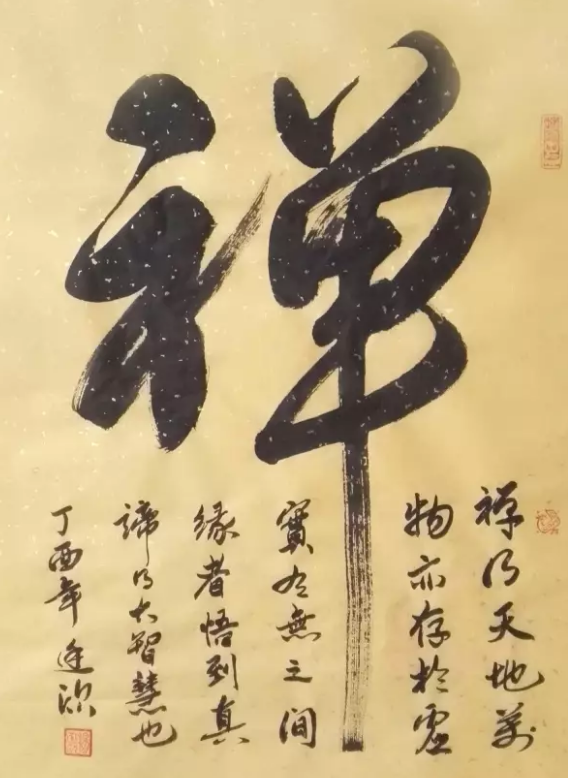 禅
禅乃天地萬
物亦存於虚
實有無之间
緣者悟到真
諦乃大智慧也
丁酉年